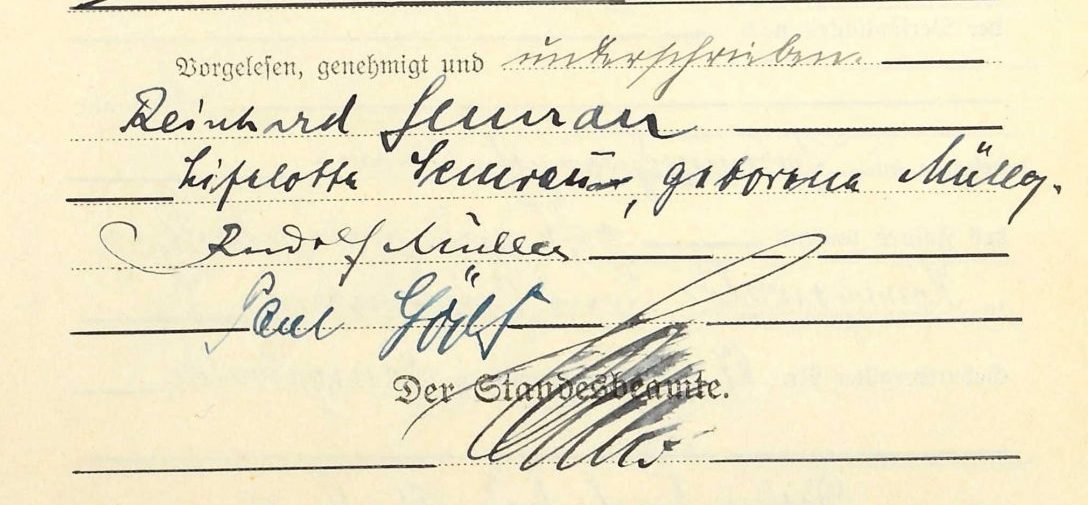 Vorgelesen, genehmigt und unterschrieben.
Reinhard Semrau
Liselotte Semrau, geborene Müller.
Rudolf Müller
Paul
Der Standesbeamte.